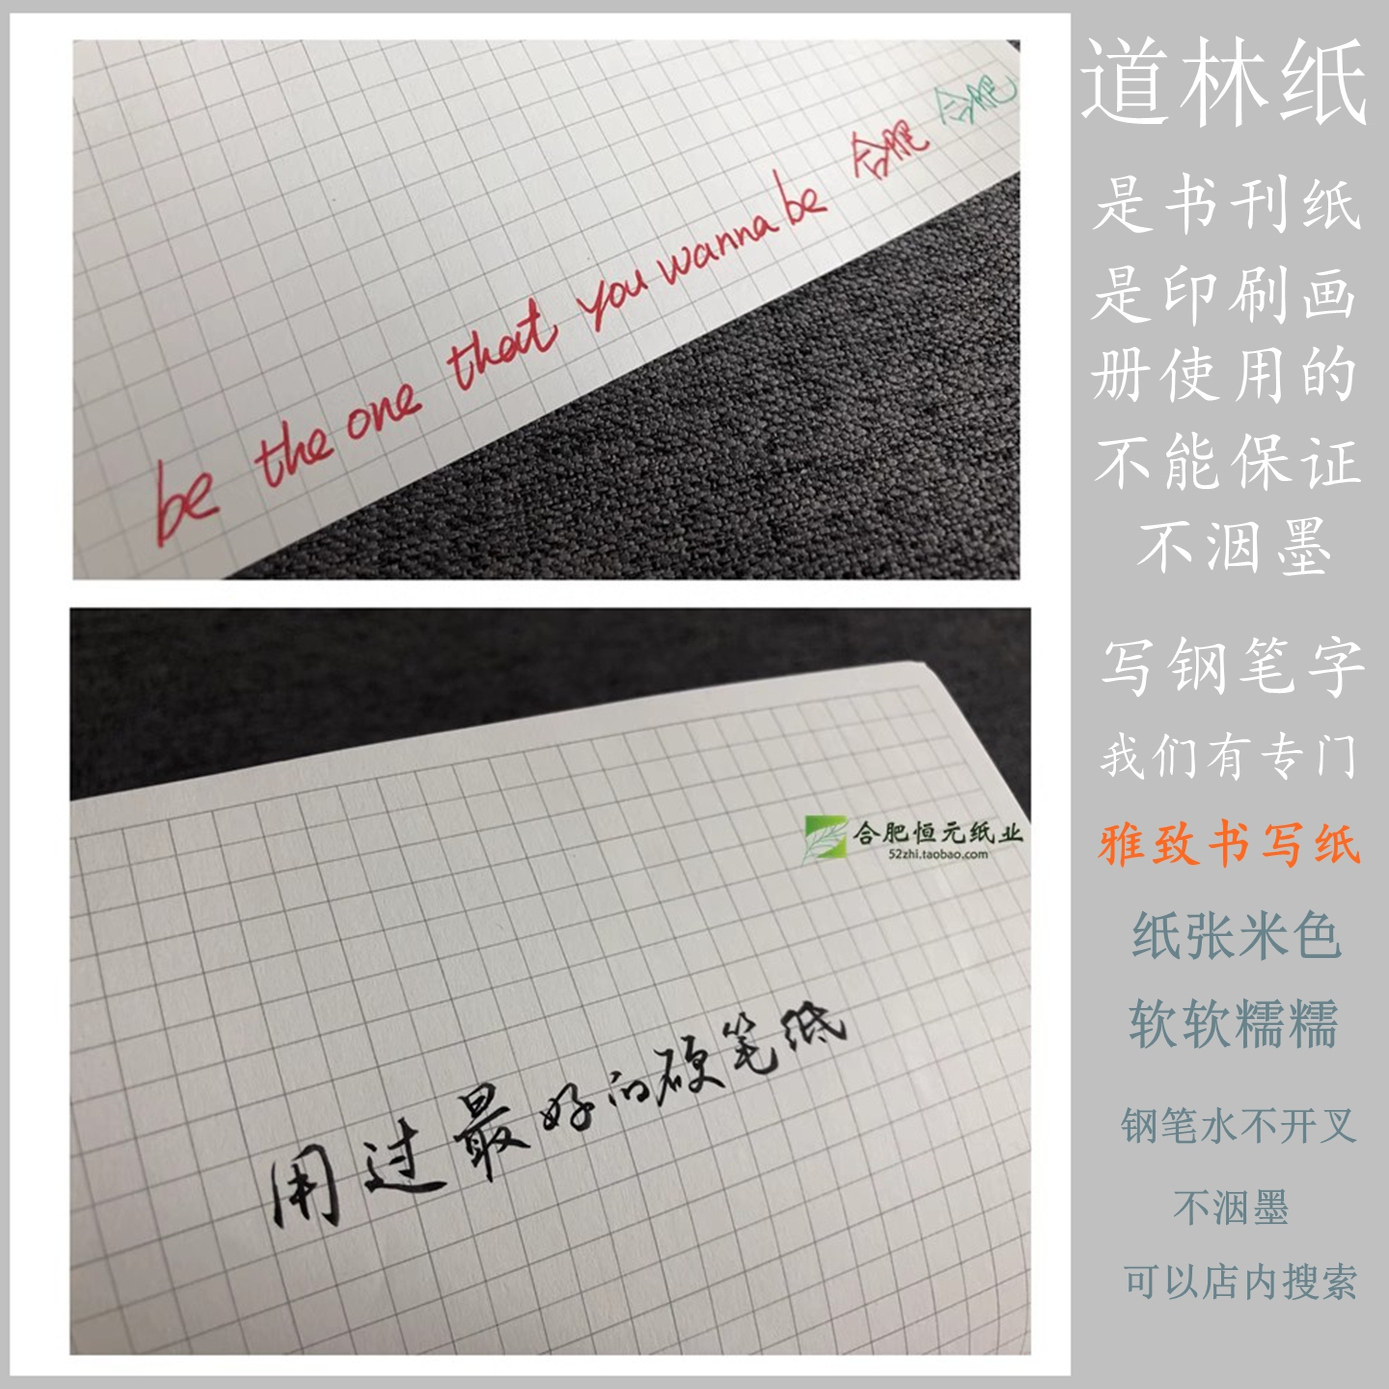 be the one that you wanna be 合肥 合肥
合肥恒元纸业
52zhi.taobao.com
用过最好的硬笔纸
道林纸
是书刊纸
是印刷画
册使用的
不能保证
不洇墨
写钢笔字
我们有专门
雅致书写纸
纸张米色
软软糯糯
钢笔水不开叉
不洇墨
可以店内搜索